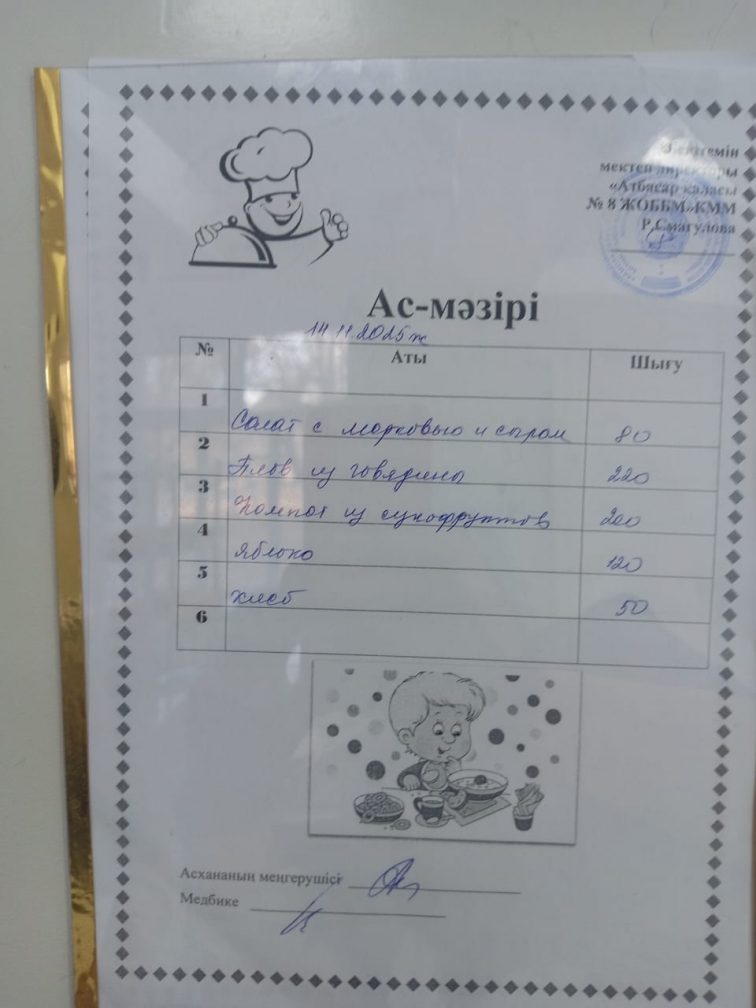 Бекітемін
мектеп директоры
«Атбасар қаласы
№ 8 ЖОББМ»КММ
Р.Смагулова
Ас-мәзірі
14.11.2025ж
№ Аты Шығу
1 Салат с морковью и сыром 80
2 Плов из говядины 220
3 Компот из сухофруктов 200
4 Яблоко 120
5 хлеб 50
6
Асхананың меңгерушісі
Медбике